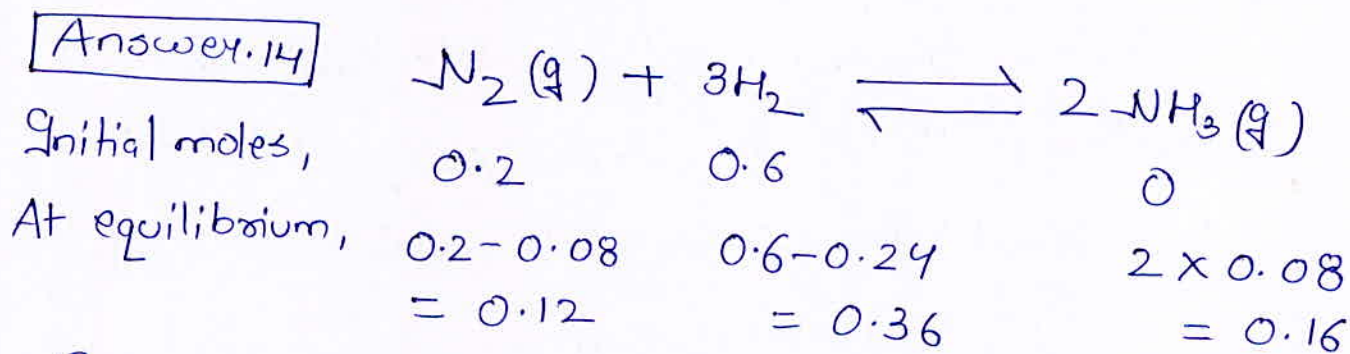 Answer.14
N₂ (g) + 3H₂ ⇌ 2 NH₃ (g)
Initial moles, 0.2 0.6 0
At equilibrium, 0.2-0.08 0.6-0.24 2 x 0.08
= 0.12 = 0.36 = 0.16